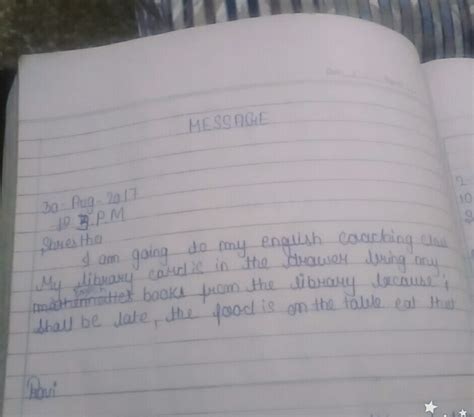 MESSAGE
30-Aug-2017
P.M
Shrestha
I am going to my english coaching class
My library card is in the drawer bring any
books from the library because i
shall be late, the food is on the table eat that
Ravi